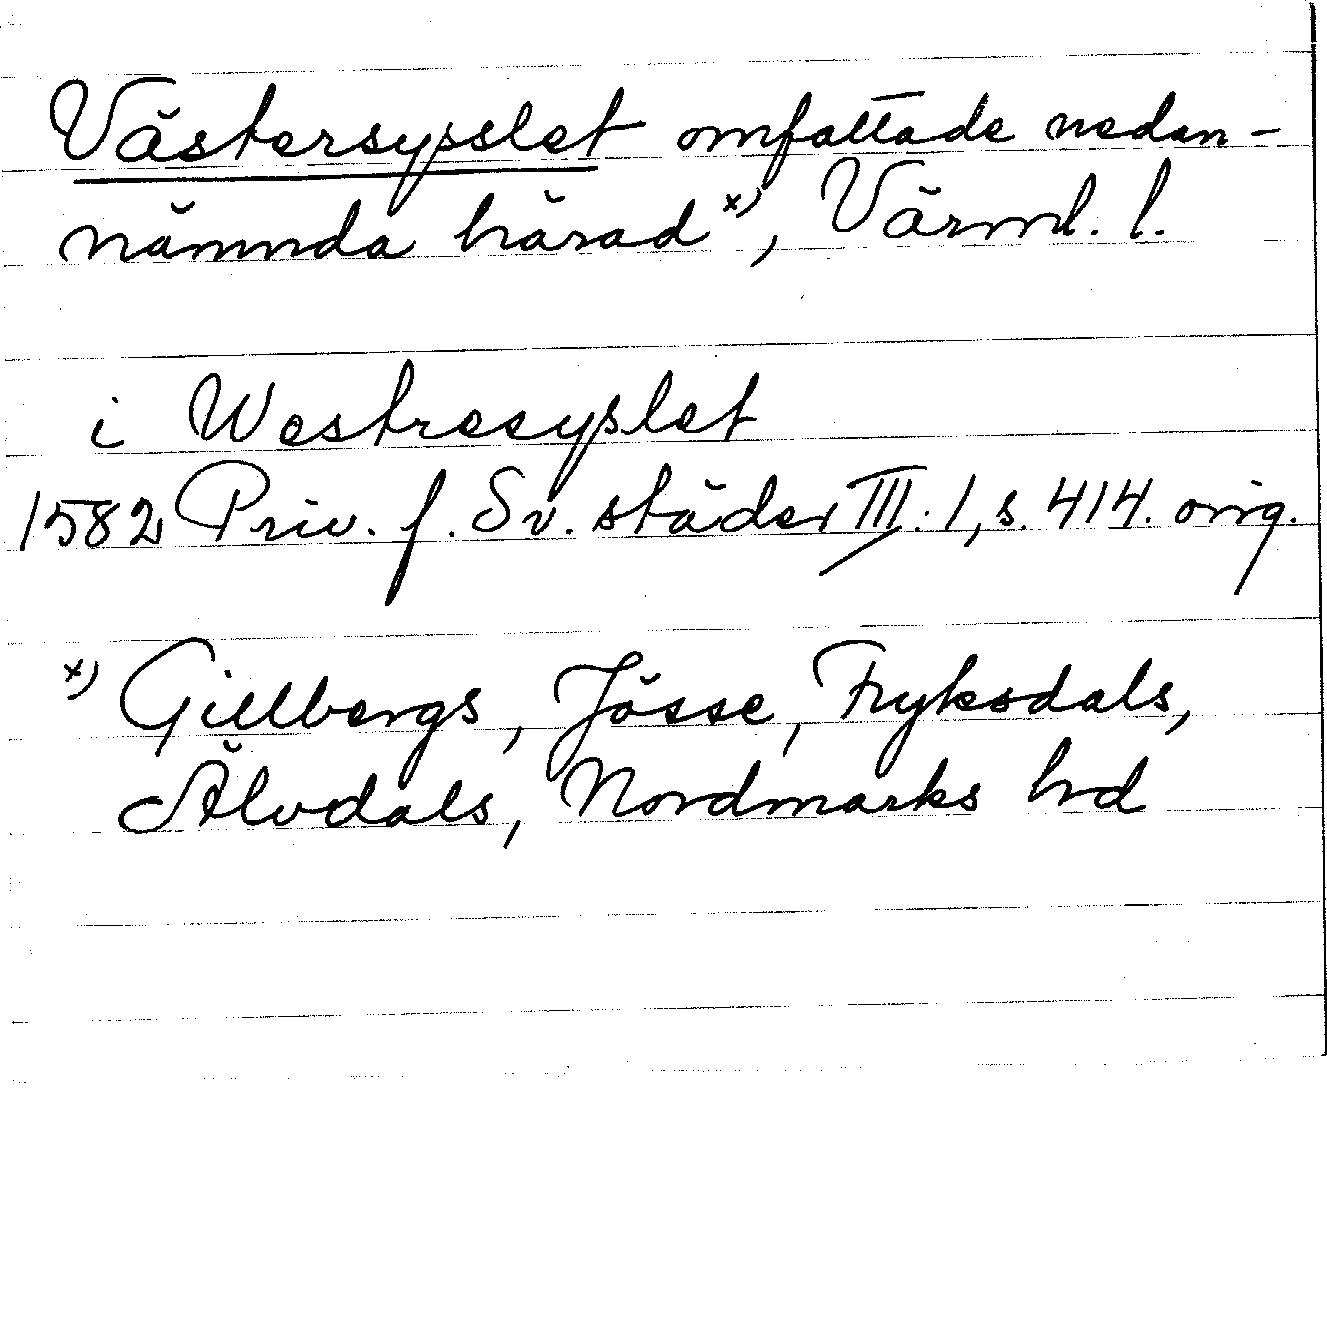 Västersysslet omfattade nedan-
nämnda härad x), Värml. l.
i Westresyslet
1582 Priv. f. Sv. städer III. 1, s. 414. orig.
x) Gillbergs, Jösse, Fryksdals,
Älvdals, Nordmarks hd